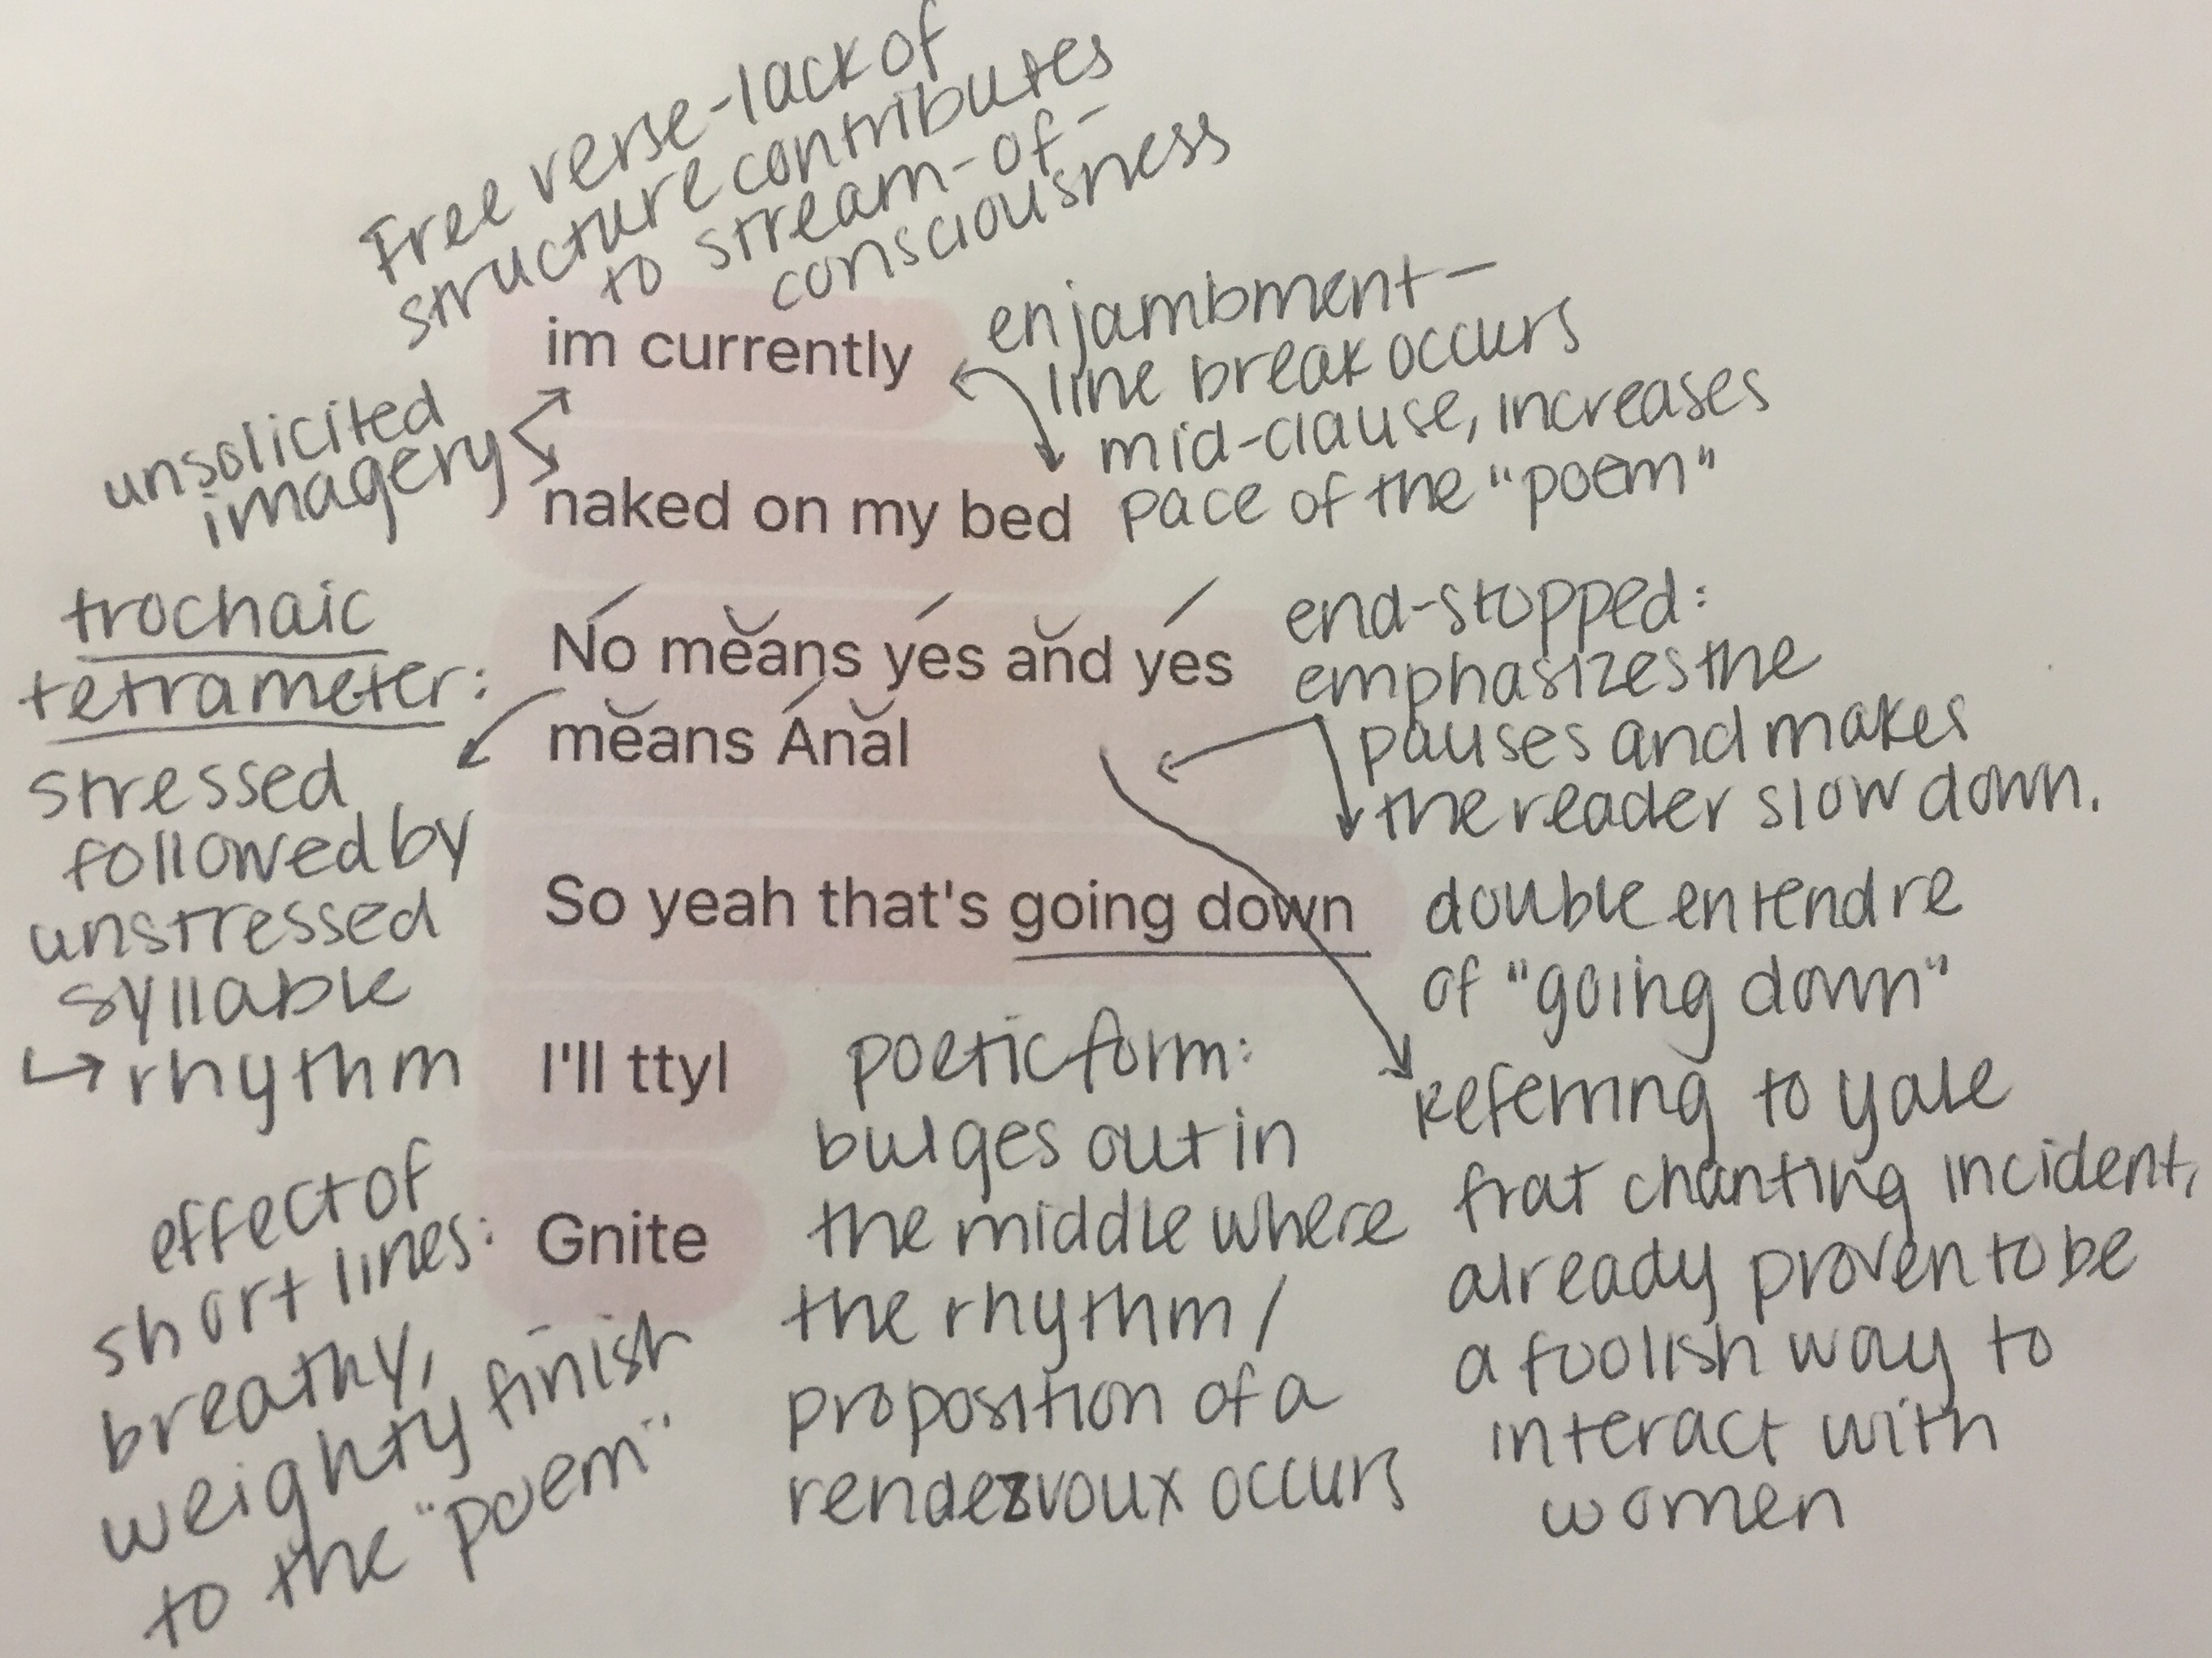 Free verse-lack of
structure contributes
to stream-of-
consciousness
im currently
enjambment—
line break occurs
mid-clause, increases
pace of the "poem"
unsolicited
imagery
naked on my bed
trochaic
tetrameter:
stressed
followed by
unstressed
syllable
↳ rhythm
No means yes and yes
means Anal
end-stopped:
emphasizes the
pauses and makes
the reader slow down.
So yeah that's going down
double entendre
of "going down"
Referring to yale
frat chanting incident,
already proven to be
a foolish way to
interact with
women
I'll ttyl
Gnite
poetic form:
bulges out in
the middle where
the rhythm/
proposition of a
rendezvoux occurs
effect of
short lines:
breathy,
weighty finish
to the "poem"